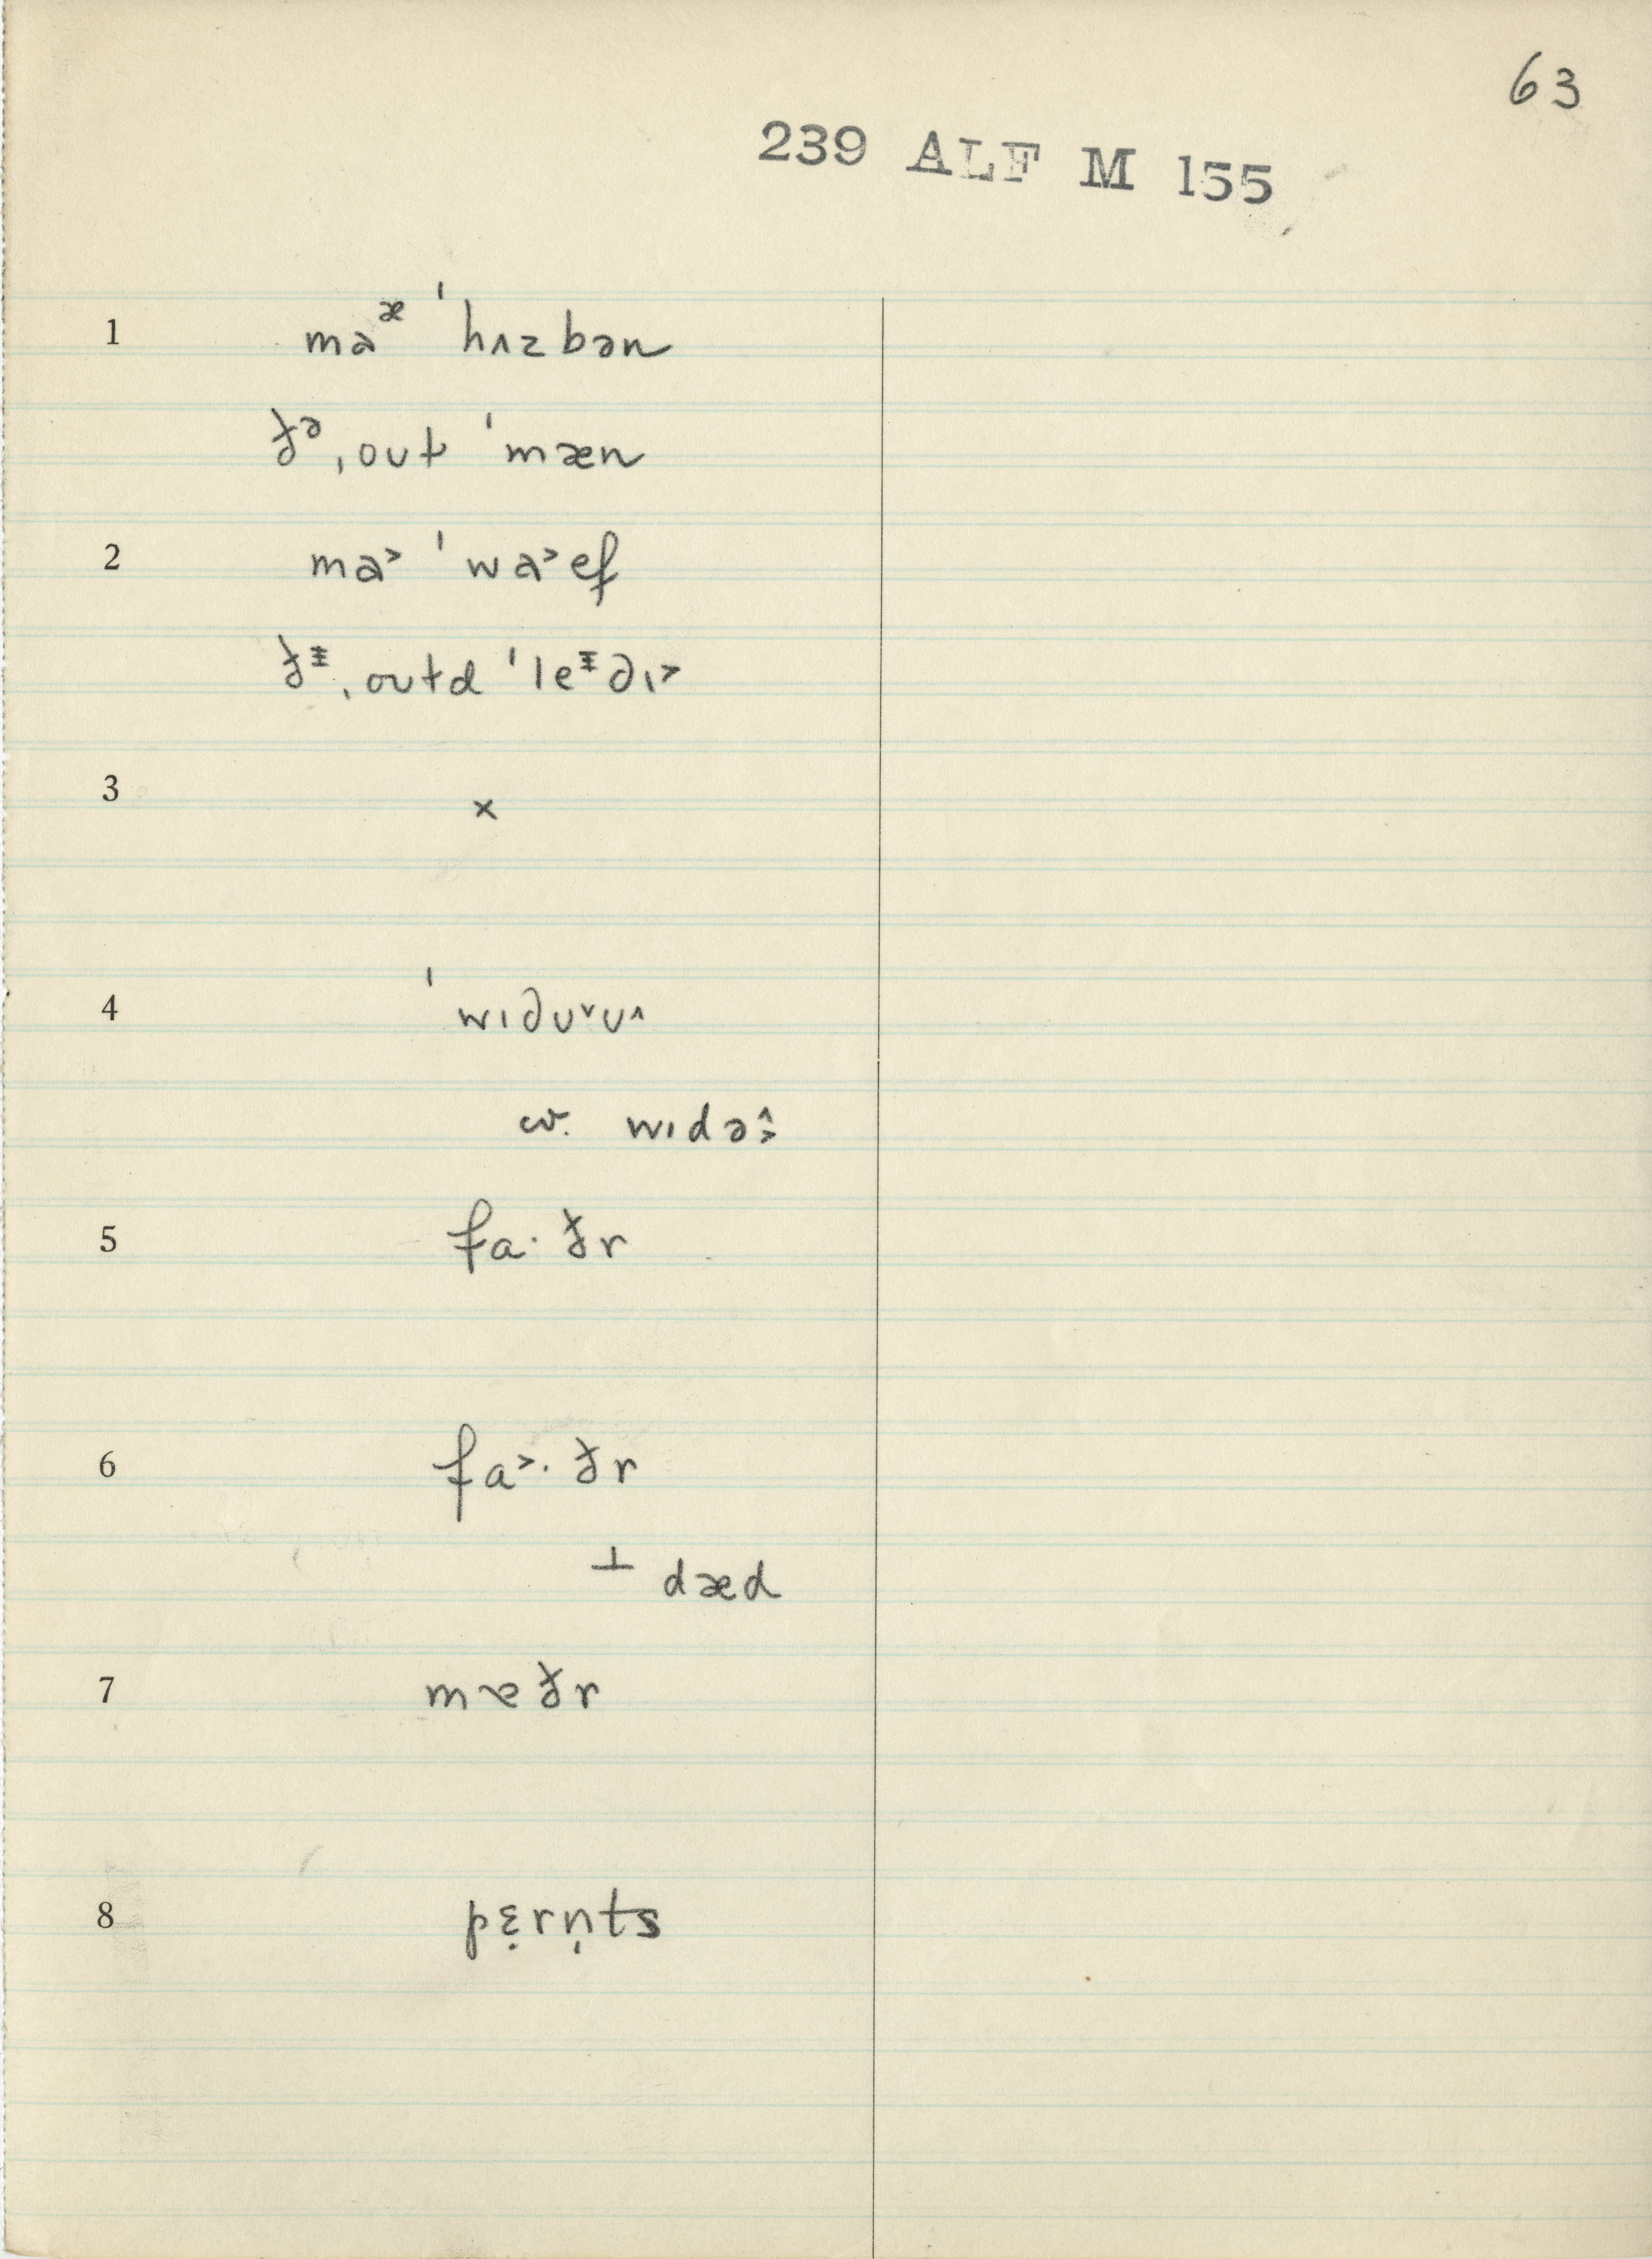 63
239 ALF M 155
1 maᵆ ˈhʌzbən
ðᵊ ˌout ˈmæn
2 ma˃ ˈwa˃ef
ðᵻ ˌoʊtd ˈleᵻ∂ɪ˃
3 ×
4 ˈwɪ∂ʊ˅ʊ˄
cv. wɪdə˄˃
5 fa· ðr
6 fa˃· ðr
⊥ dæd
7 mɐðr
8 pɛ̣rn̩ts